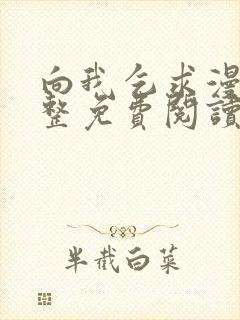 向我乞求漫
整免費閱讀
半截白菜